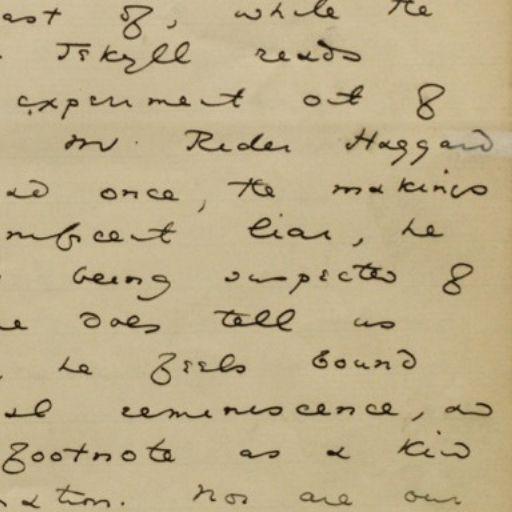 ast of, while the
Jekyll reads
experiment out of
Mr. Rider Haggard
ad once, the makings
nificent liar, he
being suspected of
e does tell us
he feels bound
al reminiscence, as
footnote as a kind
ation. Nor are our